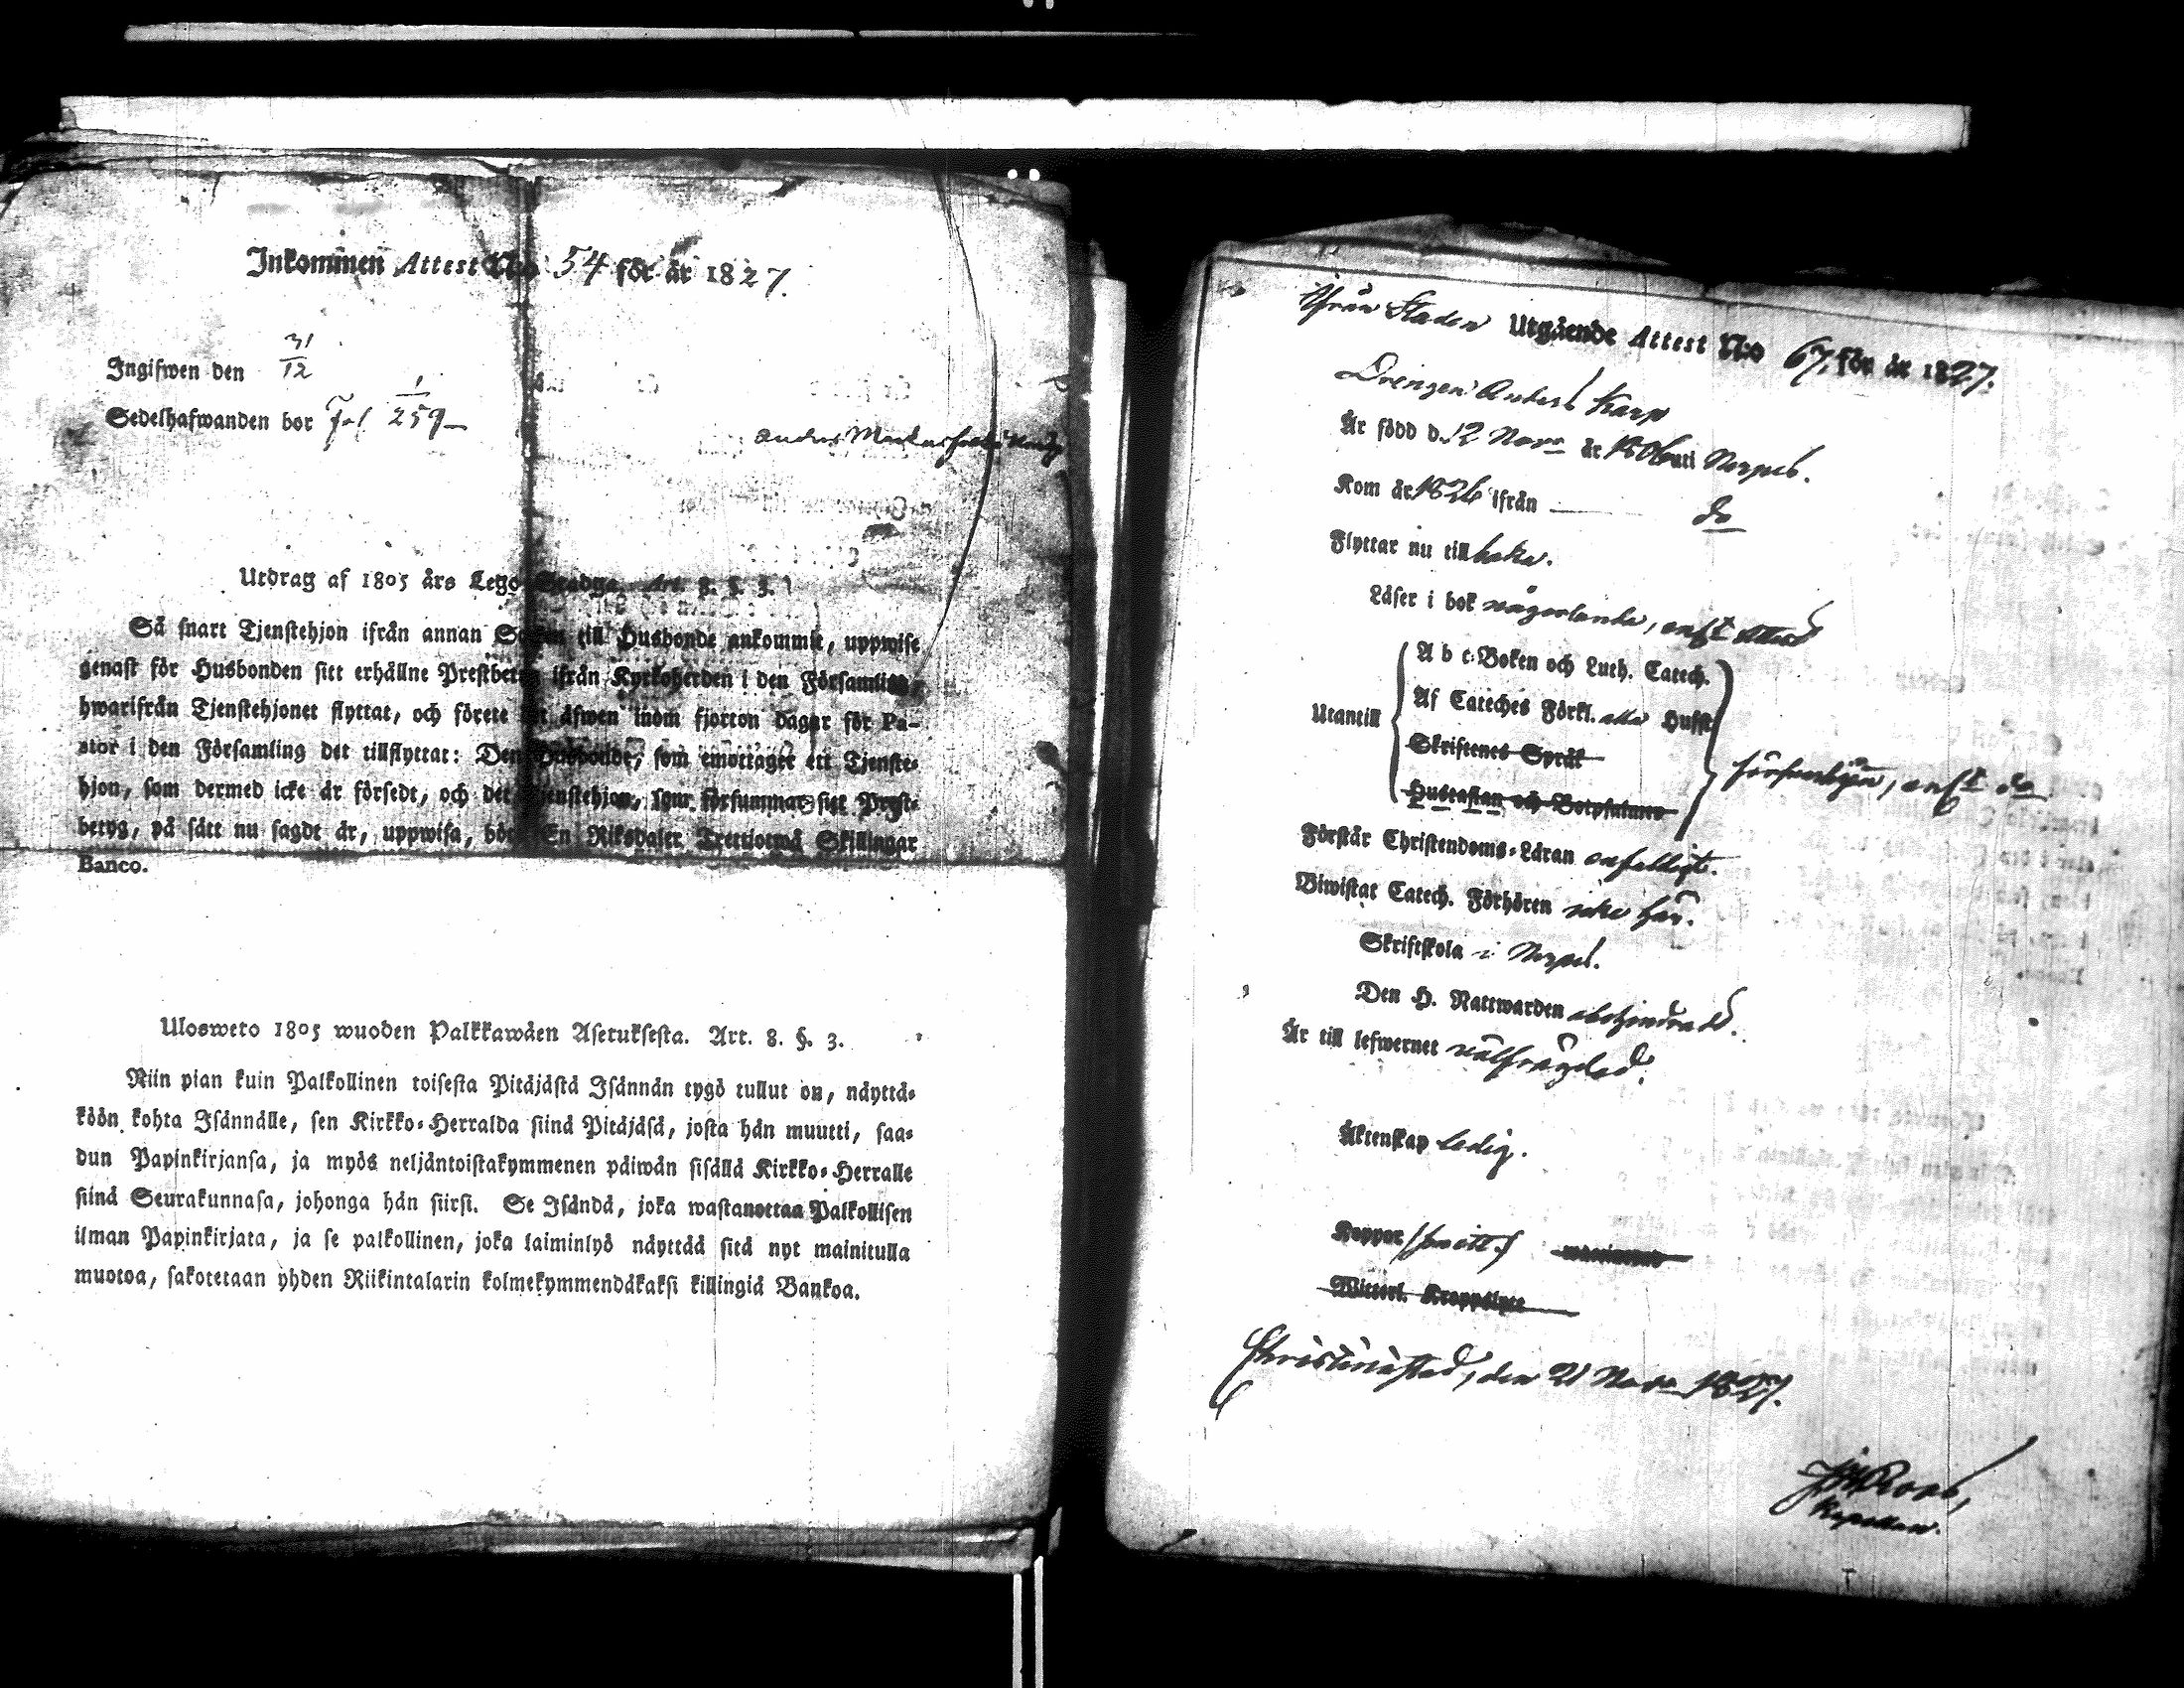 Inkommen Attest N:o 54 för år 1827.
Ingifwen den 31/12
Sedelhafwanden bor Fol 1/259
Anders Markusson
Utdrag af 1805 års Lego-Stadga. Art. 8. §. 3.
Så snart Tjenstehjon ifrån annan Socken till Husbonde ankommit, uppwise
genast för Husbonden sitt erhållne Prestbetyg ifrån Kyrkoherden i den Församling
hwarifrån Tjenstehjonet flyttat, och förete det äfwen inom fjorton dagar för Pa-
stor i den Församling det tillflyttat: Den Husbonde, som emottaget ett Tjenste-
hjon, som dermed icke är försedt, och det Tjenstehjon, som försummar sitt Prest-
betyg, på sätt nu sagdt är, uppwisa, böte En Riksdaler Trettiotwå Skillingar
Banco.
Ulosweto 1805 wuoden Palkkawäen Asetuksesta. Art. 8. §. 3.
Niin pian kuin Palkollinen toisesta Pitäjästä Isännän tygö tullut on, näyttä-
köön kohta Isännälle, sen Kirkko-Herralda siinä Pitäjäsä, josta hän muutti, saa-
dun Papinkirjansa, ja myös neljäntoistakymmenen päiwän sisällä Kirkko-Herralle
siinä Seurakunnasa, johonga hän siirsi. Se Isändä, joka wastanottaa Palkollisen
ilman Papinkirjata, ja se palkollinen, joka laiminlyö näyttää sitä nyt mainitulla
muotoa, sakotetaan yhden Riikintalarin kolmekymmendäkaksi killingiä Bankoa.
Ifrån Staden Utgående Attest N:o 67. för år 1827.
Drengen Anders Karp
Är född d. 12 Novr år 1806 uti Nerpes.
Kom år 1826 ifrån do
Flyttar nu till baka.
Läser i bok någorlunda, enl. Attest
Utantill
A b c-Boken och Luth. Catech.
Af Cateches Förkl. Husst.
Skriftenes Språk
Hustaflan och Botpsalmen
enl. do
Förstår Christendoms-Läran enfaldigt.
Biwistat Catech. Förhören icke här.
Skriftskola i Nerpes.
Den H. Nattwarden obehindrad.
Är till lefwernet välfrägdad.
Äktenskap ledig.
Koppor vaccinerad
Witterl. Kroppslyte
Christinestad, den 21 Novr 1827.
J. M. Roos,
Kapellan.